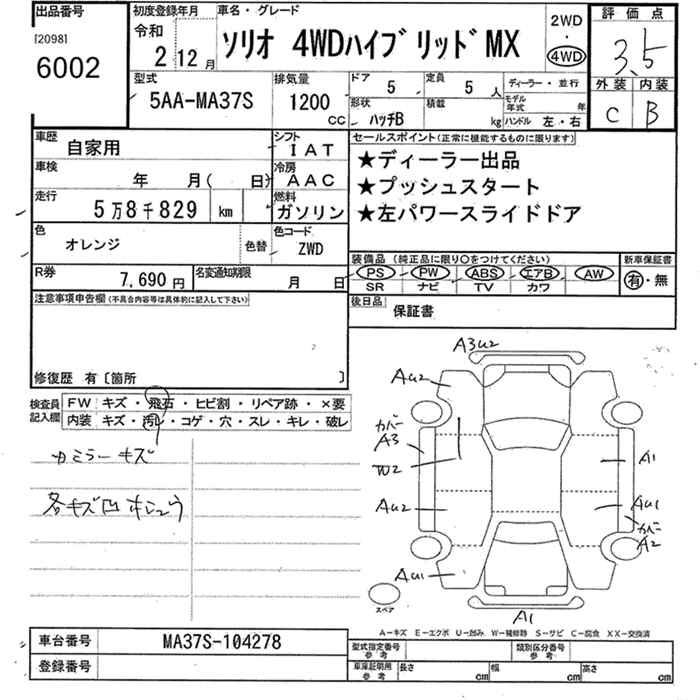 出品番号
[2098]
6002
初度登録年月
令和
2 12 月
車名・グレード
ソリオ 4WDハイブリッドMX
2WD
・
4WD
評価点
3.5
外装 内装
C B
型式
5AA-MA37S
排気量
1200
CC
ドア
5
定員
5 人
形状
ハッチB
積載
kg
ディーラー・並行
モデル年式 年
ハンドル 左・右
車歴
自家用
シフト
IAT
車検
年 月( 日)
冷房
AAC
走行
5万8千829 km
燃料
ガソリン
色
オレンジ
色替
色コード
ZWD
R券
7,690円
名変通知期限
月 日
セールスポイント(正常に機能するものに限ります)
★ディーラー出品
★プッシュスタート
★左パワースライドドア
装備品(純正品に限り〇をつけてください)
PS PW ABS エアB AW
SR ナビ TV カワ
新車保証書
有・無
後日品
保証書
注意事項申告欄(不具合内容等は具体的に記入して下さい)
修復歴 有〔箇所 〕
検査員記入欄
FW キズ・飛石・ヒビ割・リペア跡・×要
内装 キズ・汚レ・コゲ・穴・スレ・キレ・破レ
カミラーキズ
各キズ凹
A3U2
AU2
カバー
A3
AU2
AU1
A1
AU1
カバー
A2
スペア
A1
A-キズ E-エクボ U-凹み W-補修跡 S-サビ C-腐食 XX-交換済
車台番号
MA37S-104278
登録番号
型式指定番号
参考
類別区分番号
参考
車庫証明用
参考
長さ cm
幅 cm
高さ cm